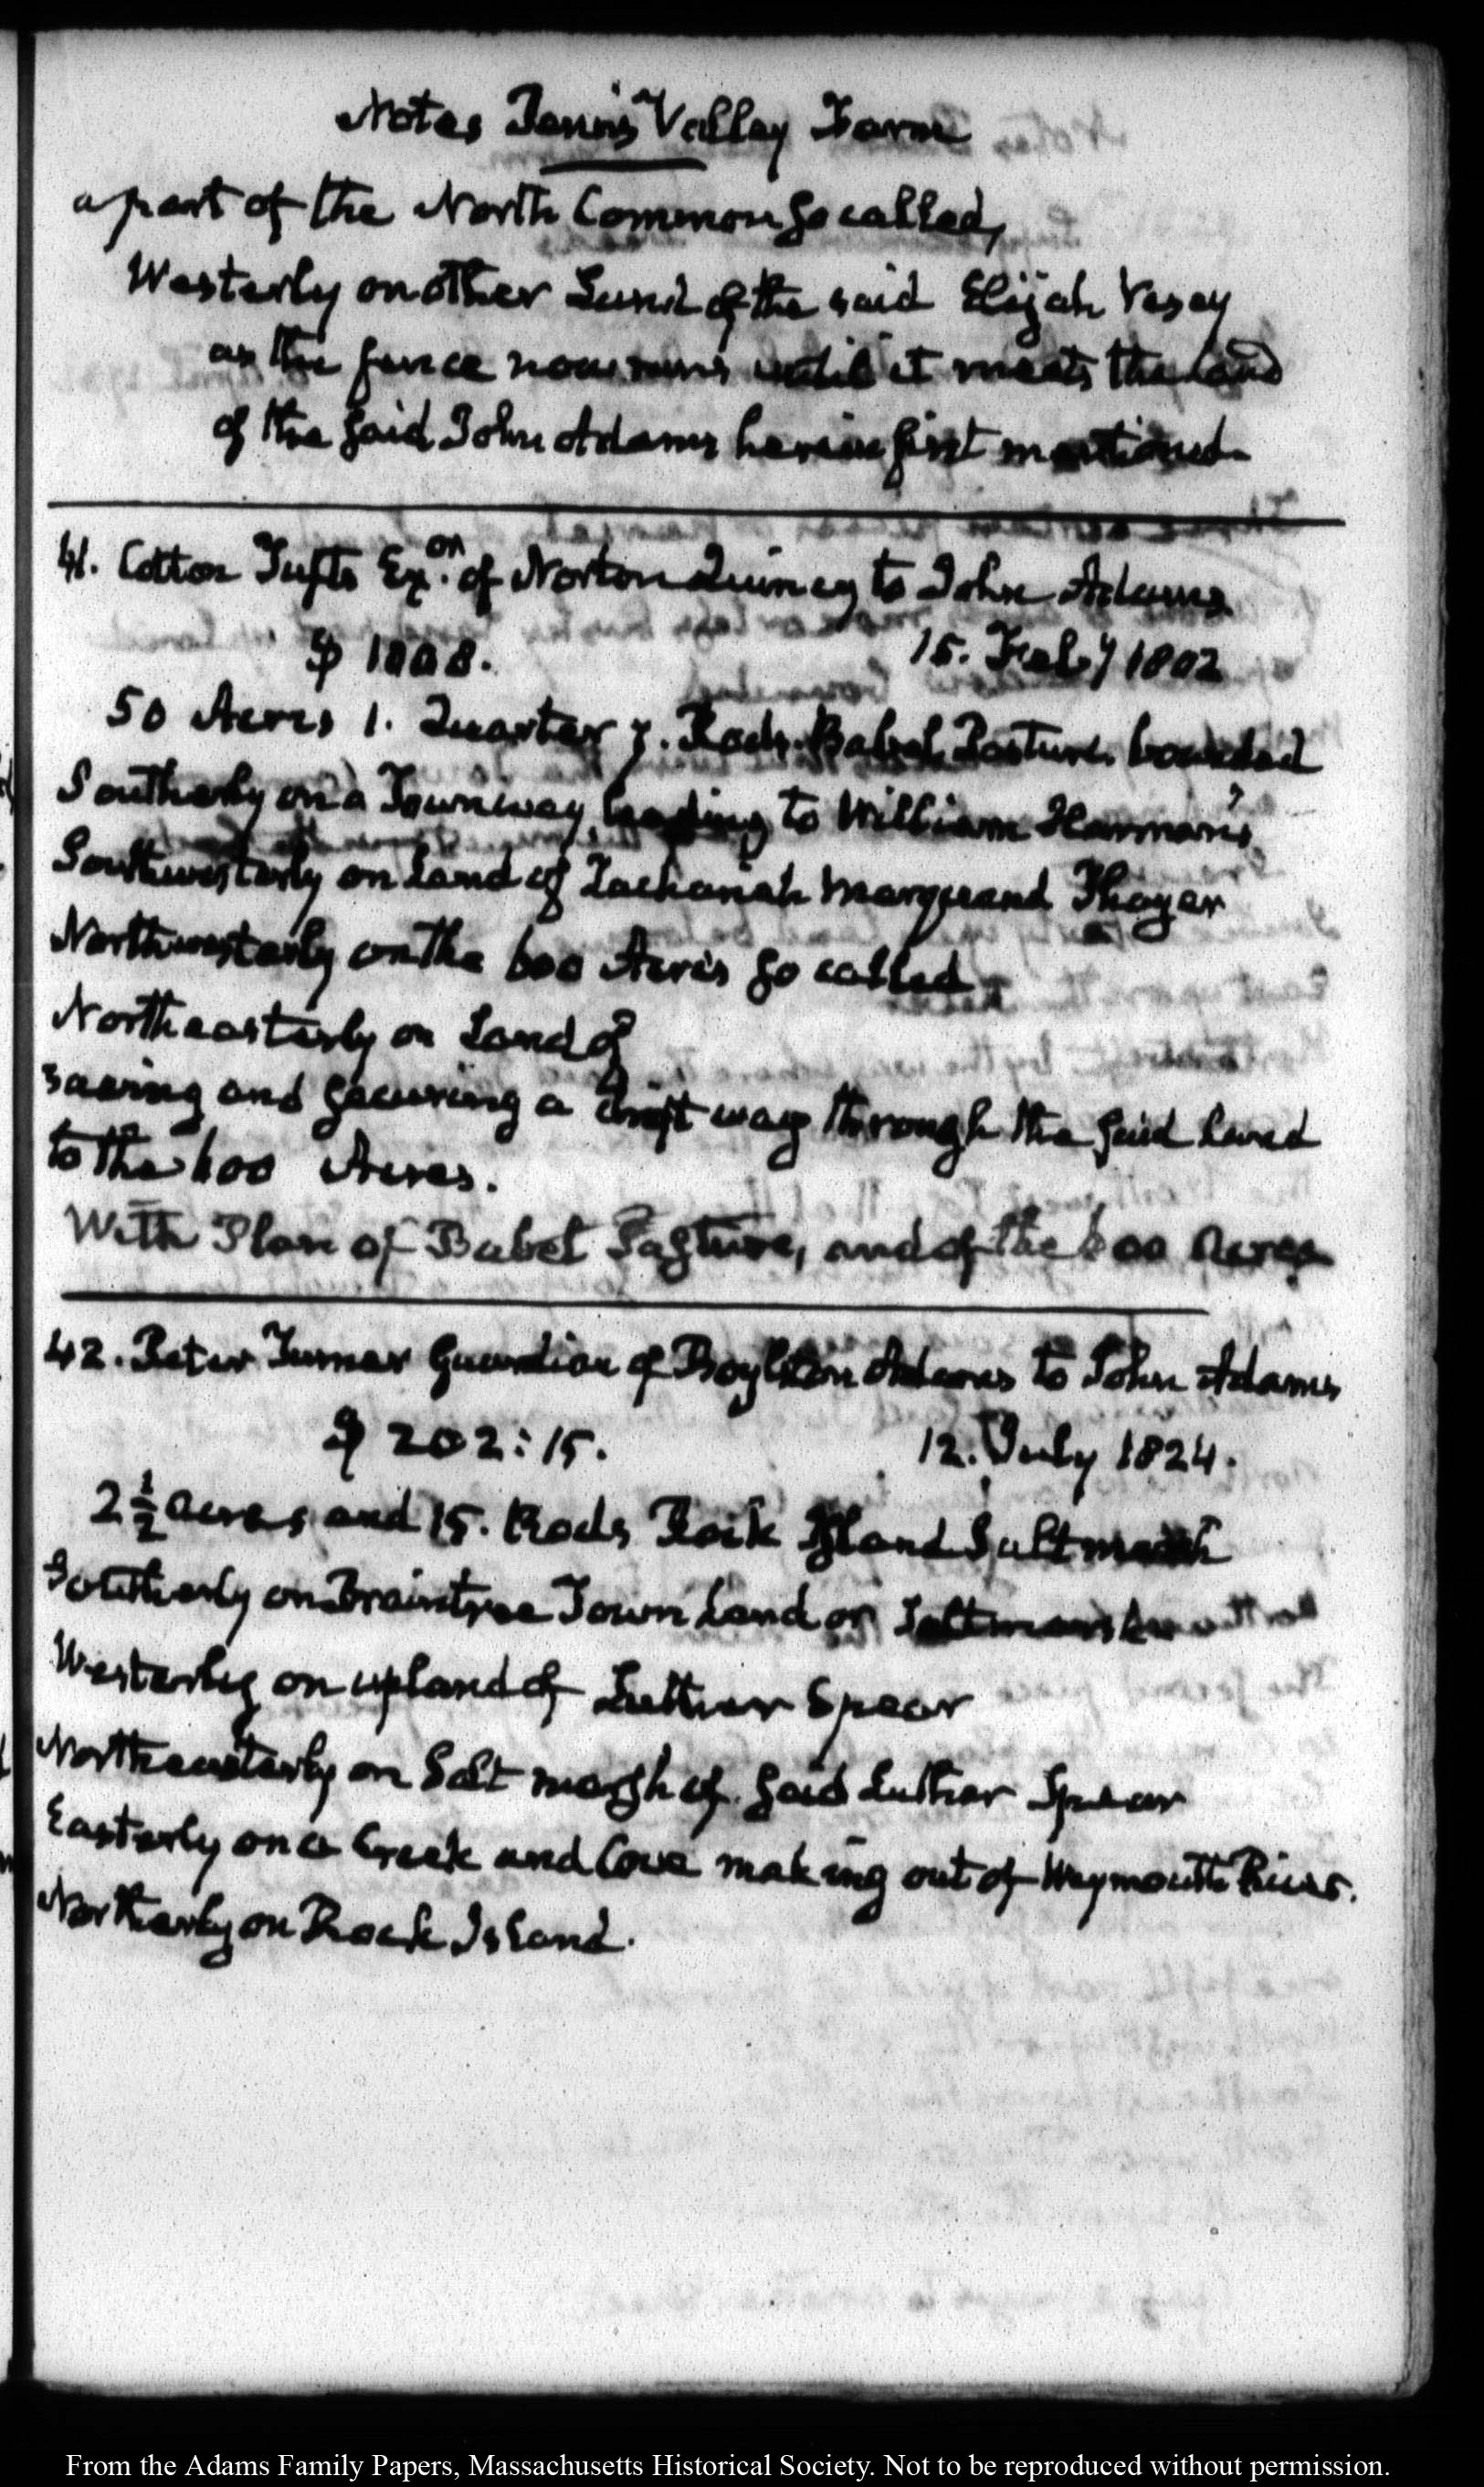 Notes Penn's Valley Farm
a part of the North Common so called,
Westerly on other Land of the said Elijah Vesey
as the fence now runs until it meets the land
of the said John Adams herein first mentioned.
41. Cotton Tufts Exr. of Norton Quincy to John Adams
$ 1008. 15. Feby 1802
50 Acres 1. Quarter 7. Rods. Babel Pasture. bounded
Southerly on a Townway, leading to William Harmon's
Southwesterly on Land of Zachariah Marquand Thayer
Northwesterly on the 600 Acres so called
Northeasterly on Land of
saving and securing a drift way through the said land
to the 600 Acres.
With Plan of Babel Pasture, and of the 600 Acres
42. Peter Turner Guardian of Boylston Adams to John Adams
$ 202:15. 12. July 1824.
2 1/2 acres and 15. Rods Rock Island Salt marsh
Southerly on Braintree Town Land or Saltmarsh
Westerly on upland of Luther Spear
Northeasterly on Salt marsh of said Luther Spear
Easterly on a Creek and Cove making out of Weymouth River.
Northerly on Rock Island.
From the Adams Family Papers, Massachusetts Historical Society. Not to be reproduced without permission.